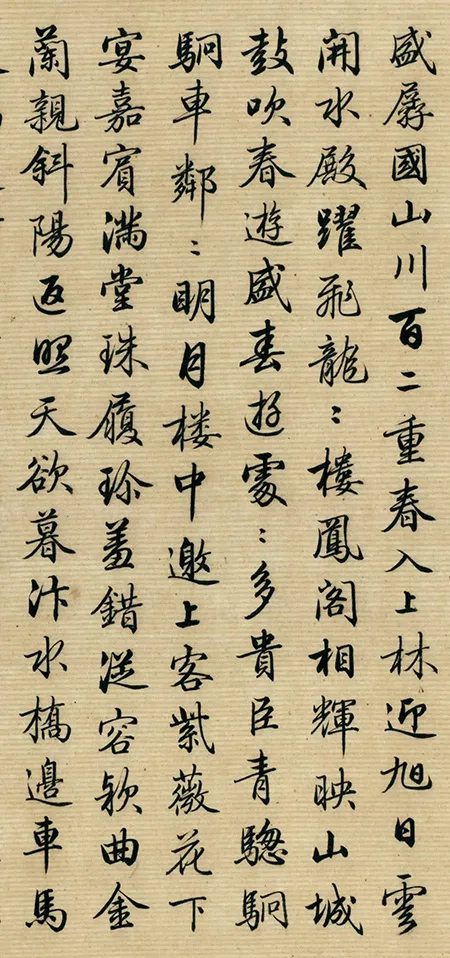 盛孱國山川百二重春入上林迎旭日雲
開水殿躍飛龍〻樓鳳閣相輝映山城
鼓吹春遊盛春遊處〻多貴臣青驄駉
駉車鄰〻明月楼中邀上客紫薇花下
宴嘉賓滿堂珠履珍羞錯從容欵曲金
蘭親斜陽返照天欲暮汴水橋邊車馬